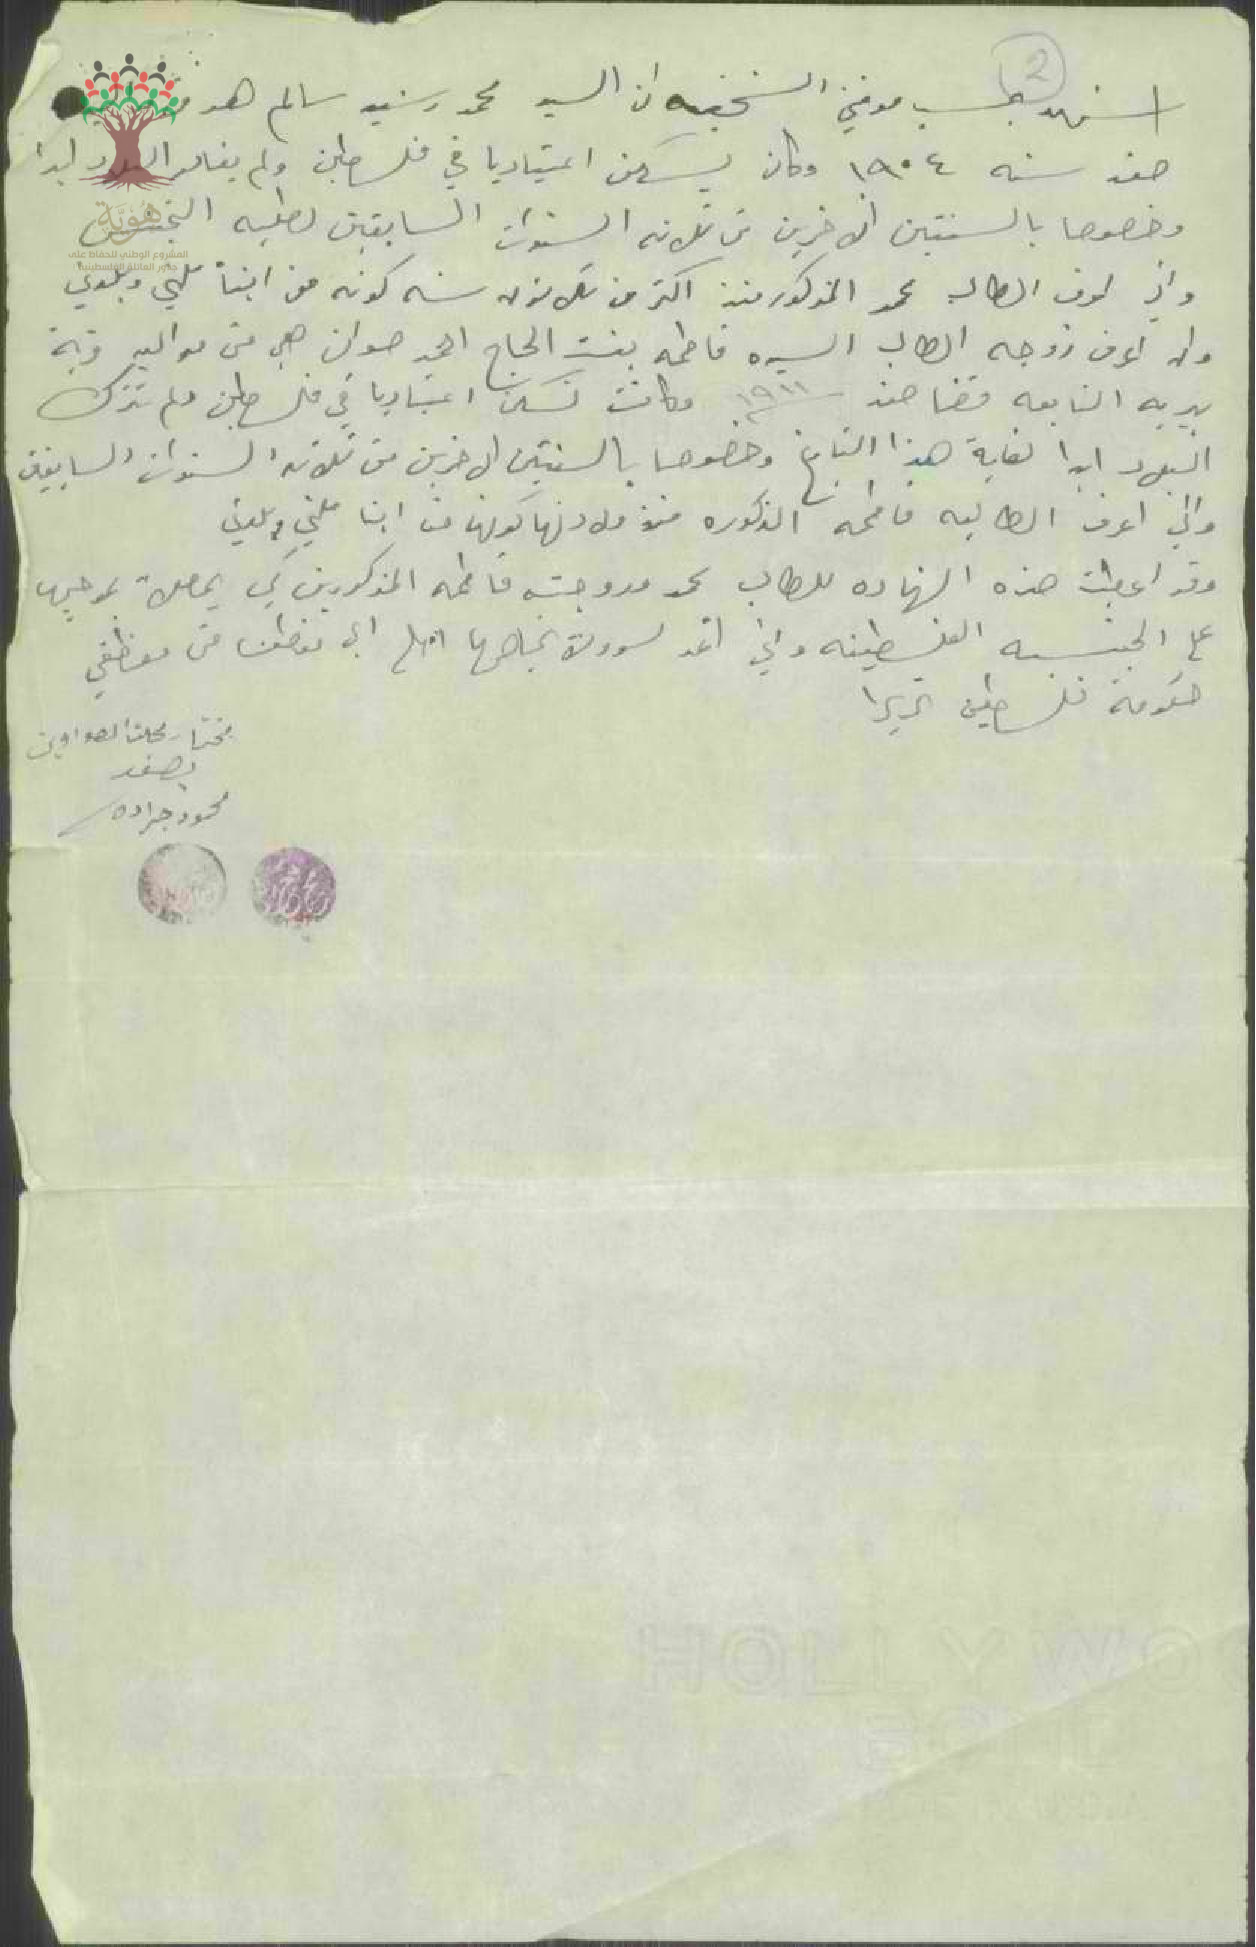 2
اشهد بحسب معرفتي الشخصيه ان السيد محمد رشيد سالم هو من
صفد سنه ١٩٠٤ وكان يسكن اعتياديا في فلسطين ولم يغادر البلاد ابدا
وخصوصا بالسنتين الاخرين من ثلاثه السنوات السابقين لطلبه التجنس
واني اعرف الطالب محمد المذكور منذ اكثر من ثلاثون سنه كونه من ابناء ملتي وبلدتي
وان اعرف زوجه الطالب السيده فاطمه بنت الحاج احمد صوان هي من مواليد قرية
بيريه التابعه قضا صفد ١٩١١ وكانت تسكن اعتياديا في فلسطين ولم تترك
البلاد ابدا لغاية هذا التاريخ وخصوصا بالسنتين الاخرين من ثلاثه السنوات السابقين
واني اعرف الطالبه فاطمه المذكوره منذ ولادتها كونها من ابنا ملتي وبلدتي
وقد اعطيت هذه الشهاده للطالب محمد وزوجته فاطمه المذكورين كي يحصلا بموجبها
على الجنسيه الفلسطينيه واني اتحمد لدى من موظفي
حكومة فلسطين تحريرا
مختار محلة الصواوين
بصفد
محمود جراده
هُوِيَّة
المشروع الوطني للحفاظ على
جذور العائلة الفلسطينية
HOLLYWOO